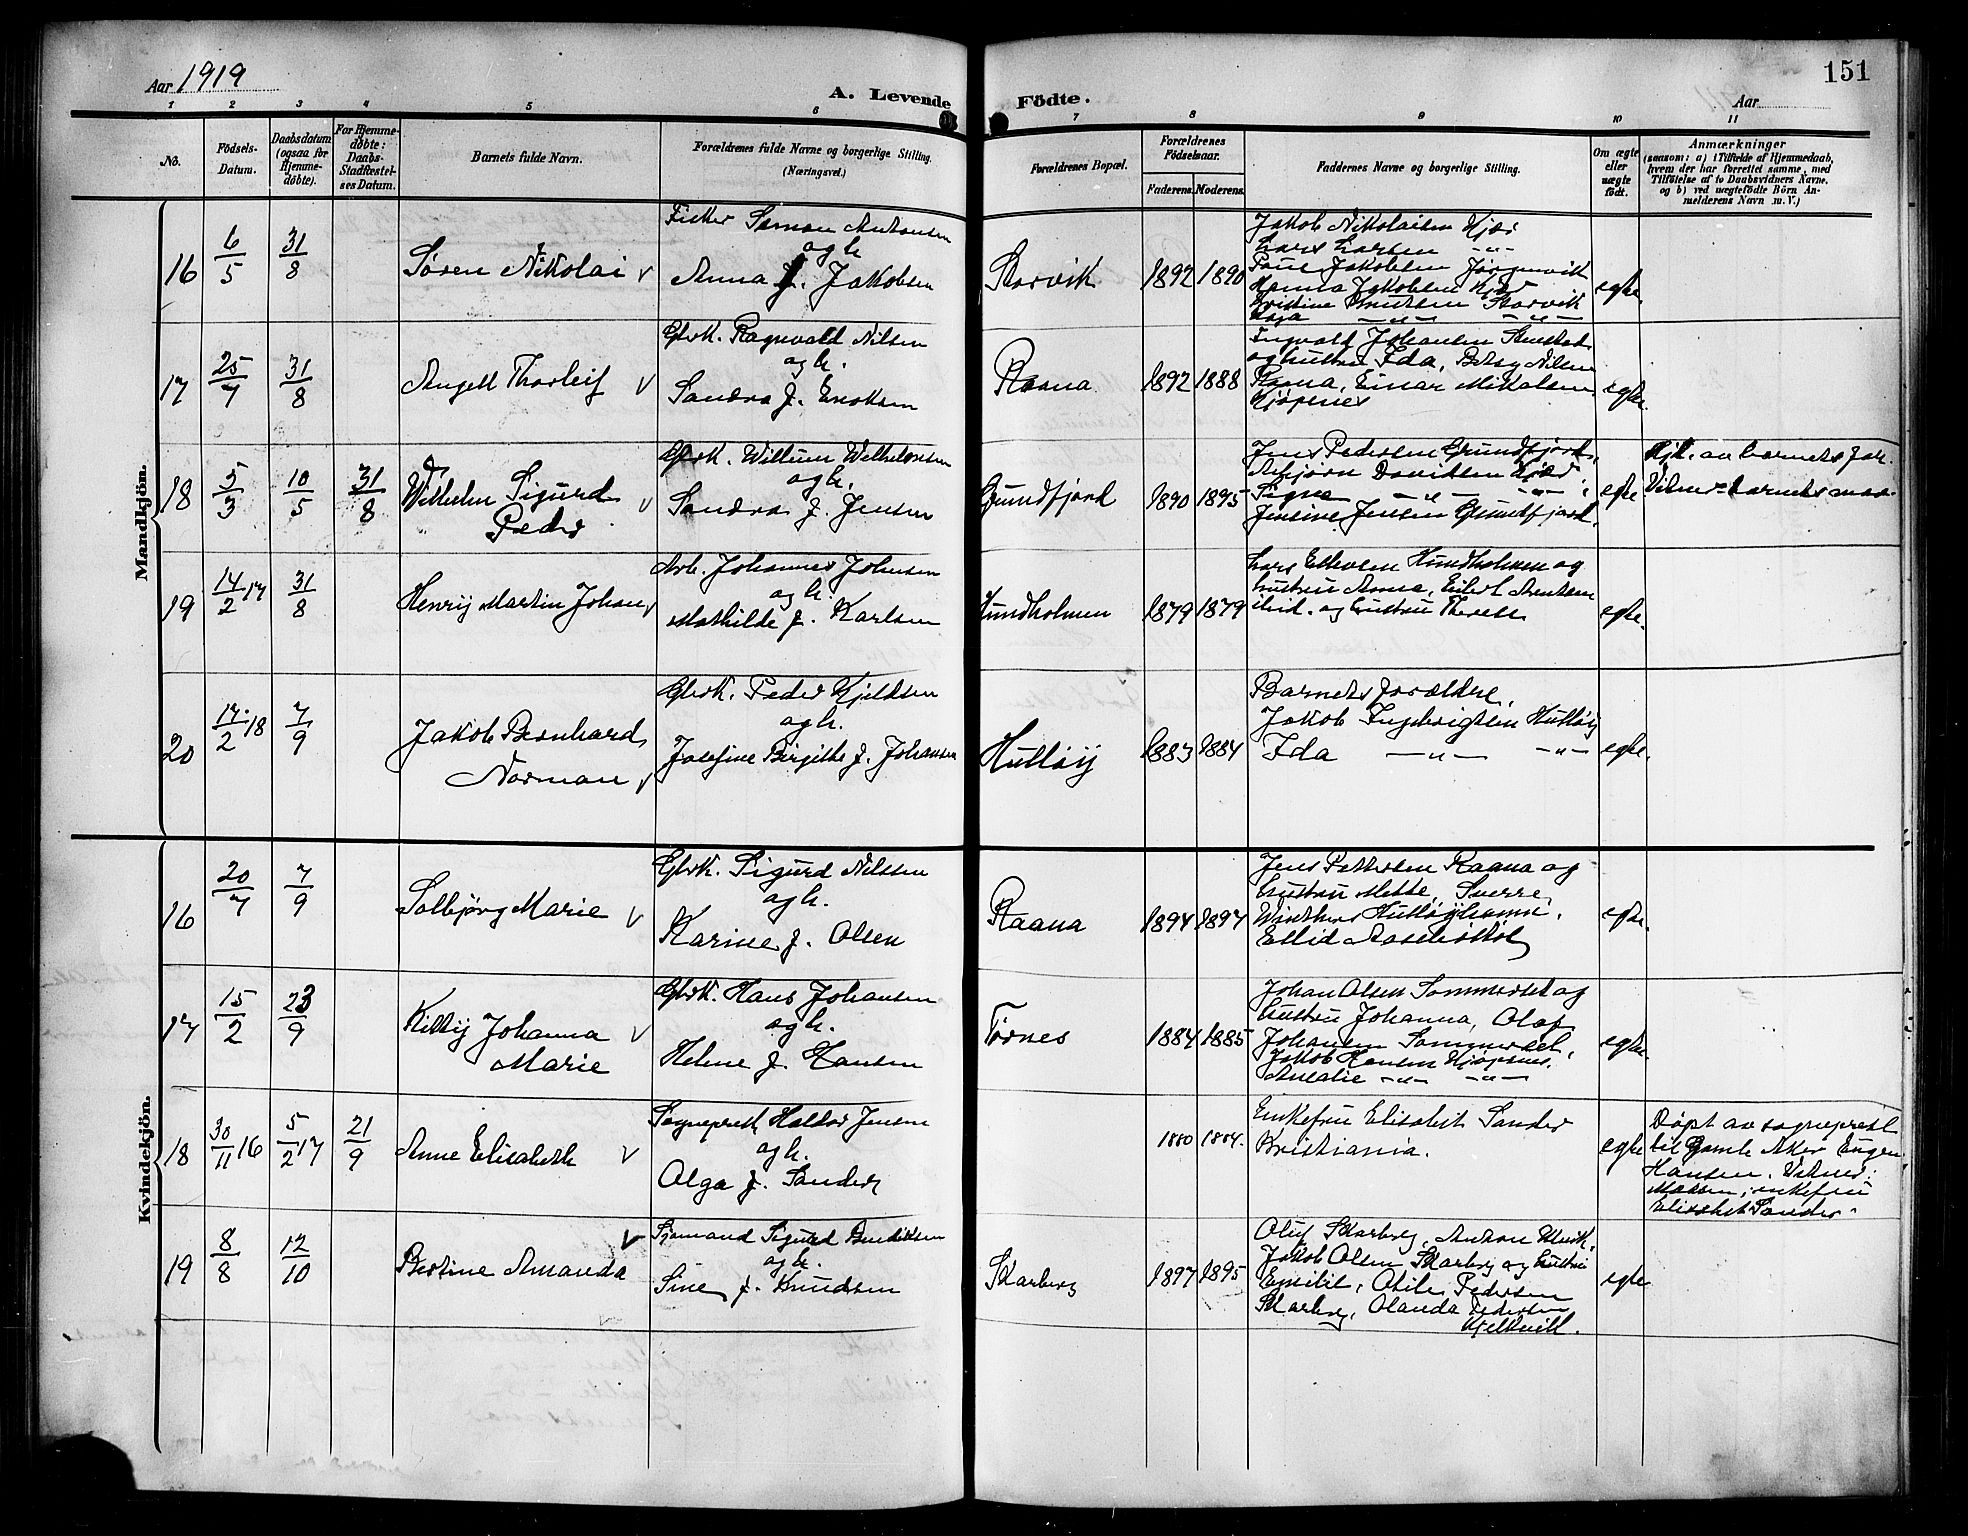 Aar 1919
A. Levende Födte.
151
Aar
1 2 3 4 5 6 7 8 9 10 11
No.
Födsels-Datum.
Daabsdatum (ogsaa for Hjemme-døbte).
For Hjemme-døbte: Daabs-Stadfæstel-ses Datum.
Barnets fulde Navn.
Forældrenes fulde Navne og borgerlige Stilling. (Næringsvei.)
Forældrenes Bopæl.
Forældrenes Födselsaar.
Faderens. Moderens.
Faddernes Navne og borgerlige Stilling.
Om ægte eller uægte födt.
Anmærkninger
(saasom: a) i Tilfælde af Hjemmedaab,
hvem der har forrettet samme, med
Tilföielse af to Daabsvidners Navne,
og b) ved uægtefödte Börn An-
melderens Navn m. V.)
Mandkjön.
16 6/5 31/8 Søren Nikolai v
Fisker Simon Antonsen
og h.
Anna f. Jakobsen
Storvik 1892 1890
Jakob Nikolaisen Kjær
Lars Larsen -"-
Paul Jakobsen Jørgenvik
Hanna Jakobsen Kjær
Kristine Knutsen Storvik
Kaja -"- -"-
egte.
17 25/7 31/8 Angell Thorleif v
Gbrk. Ragnvald Nilsen
og h.
Sandra f. Eriksen
Raana 1892 1888
Ingvald Johansen
og hustru Ida, Betsy Nilsen
Raana, Einar Mikalsen
Kjøpsnes
egte.
18 5/3 10/5 31/8 Wilhelm Sigurd v
Peder
Gbrk. Willum Wilhelmsen
og h.
Sandra f. Jensen
Grundfjord 1890 1895
Jens Pedersen Grundfjord,
Asbjørn Davidsen Kjær,
Signe -"- -"-,
Jensine Jensen Grundfjord.
egte
Hjd. av barnets far.
Vitner: barnets mor
19 14/2 17 31/8 Henrij Martin Johan v
Arb. Johannes Johnsen
og h.
Mathilde f. Karlsen
Hundholmen 1879 1879
Lars Ellevsen Hundholmen og
hustru Anna, Eilert Arntsen
ibid. og hustru Therese
egte.
20 17/2 18 7/9 Jakob Bernhard
Norman v
Gbrk. Peder Kjeldsen
og h.
Josefine Birgithe f. Johansen
Hulløij 1883 1884
Barnets forældre,
Jakob Ingebrigtsen Hulløij
Ida -"- -"-
egte.
Kvindekjön.
16 20/7 7/9 Solbjørg Marie v
Gbrk. Sigurd Nilssen
og h.
Karine f. Olsen
Raana 1894 1897
Jens Pettersen Raana og
hustru Mette, Sverre
Winther Hulløijhamn,
Ellid
egte.
17 15/2 23/9 Kittij Johanna v
Marie
Gbrk. Hans Johansen
og h.
Helene f. Hansen
Tørnes 1884 1885
Johan Olsen Sommerset og
hustru Johanna, Olaf
Johansen Sommerset,
Jakob Hansen Kjøpsnes,
Amalie -"- -"-
egte.
18 30/11 16 5/2 17 21/9 Anne Elisabeth v
Sogneprest Haldor Jensen
og h.
Olga f. Sander
1880 1884.
Enkefru Elisabet Sander
Kristiania.
egte
Døpt av sogneprest
til Gamle Aker Eugen
Hansen. Vitner:
enkefru
Elisabet Sander.
19 8/8 12/10 Bertine Amanda v
Sjømand Sigurd Bendiksen
og h.
Sine f. Knudsen
Skarberg 1897 1895
Oluf Skarberg, Anton
Jakob Olsen Skarberg og hustru
Emilie, Otile Pedersen
Skarberg, Olanda Pedersen
egte